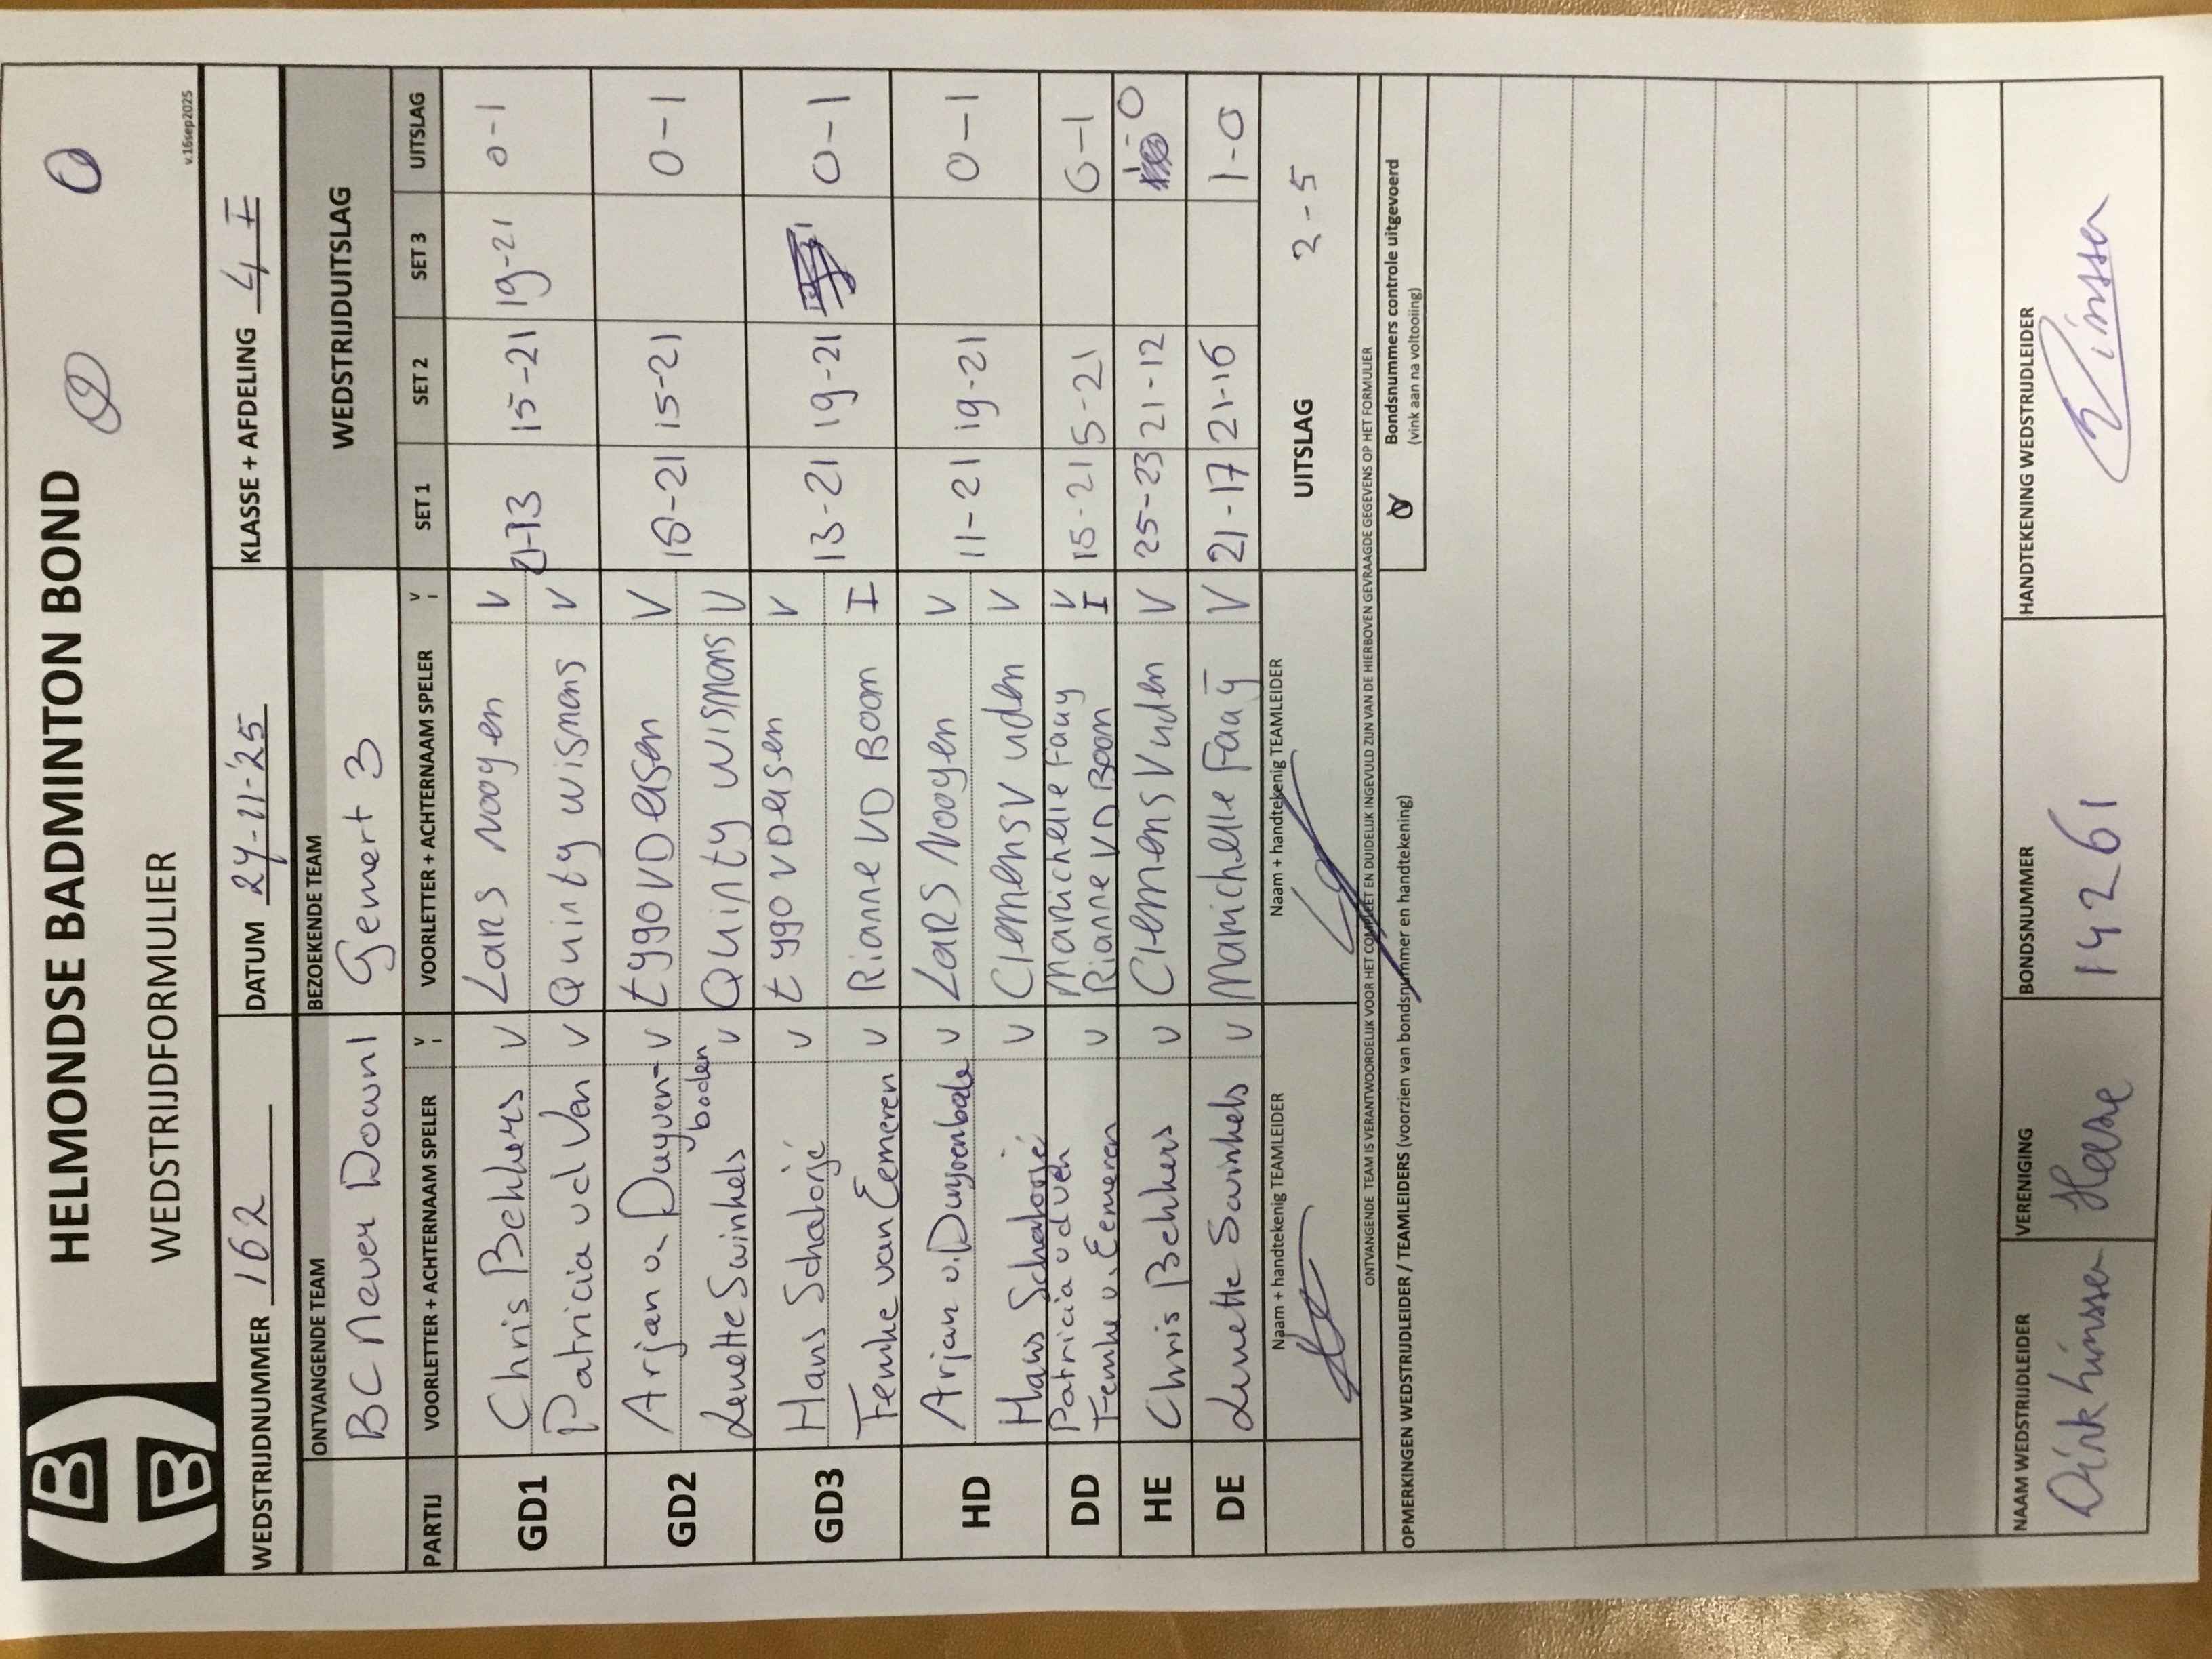 HELMONDSE BADMINTON BOND
WEDSTRIJDFORMULIER
v.16sep2025
WEDSTRIJDNUMMER 162 DATUM 24-11-'25 KLASSE + AFDELING 4 I
ONTVANGENDE TEAM BEZOEKENDE TEAM WEDSTRIJDUITSLAG
BC Never Down 1 Gemert 3
PARTIJ VOORLETTER + ACHTERNAAM SPELER V I VOORLETTER + ACHTERNAAM SPELER V I SET 1 SET 2 SET 3 UITSLAG
GD1 Chris Bekkers V Lars Nooyen V 21-13 15-21 19-21 0-1
Patricia vd Ven V Quinty Wismans V
GD2 Arjan v. Duyven- V tyggo VD elsen V 18-21 15-21 0-1
boden
Lunette Swinkels V Quinty Wismans V
GD3 Hans Schalojé V tyggo VD elsen V 13-21 19-21 0-1
Femke van Eemeren V Rianne VD Boom I
HD Arjan v. Duyvenbode V Lars Nooyen V 11-21 19-21 0-1
Hans V Clemens V uden V
DD Patricia vd Ven Marichelle Faay V 15-21 15-21 0-1
Femke v. Eemeren V Rianne VD Boom I
HE Chris Bekkers V Clemens V uden V 25-23 21-12 0
DE Lunette Swinkels V Marichelle Faaÿ V 21-17 21-16 1-0
Naam + handtekenig TEAMLEIDER Naam + handtekenig TEAMLEIDER UITSLAG 2-5
ONTVANGENDE TEAM IS VERANTWOORDELIJK VOOR HET COMPLEET EN DUIDELIJK INGEVULD ZIJN VAN DE HIERBOVEN GEVRAAGDE GEGEVENS OP HET FORMULIER
OPMERKINGEN WEDSTRIJDLEIDER / TEAMLEIDERS (voorzien van bondsnummer en handtekening)
Bondsnummers controle uitgevoerd
(vink aan na voltooiing)
NAAM WEDSTRIJDLEIDER VERENIGING BONDSNUMMER HANDTEKENING WEDSTRIJDLEIDER
Dirk 14261